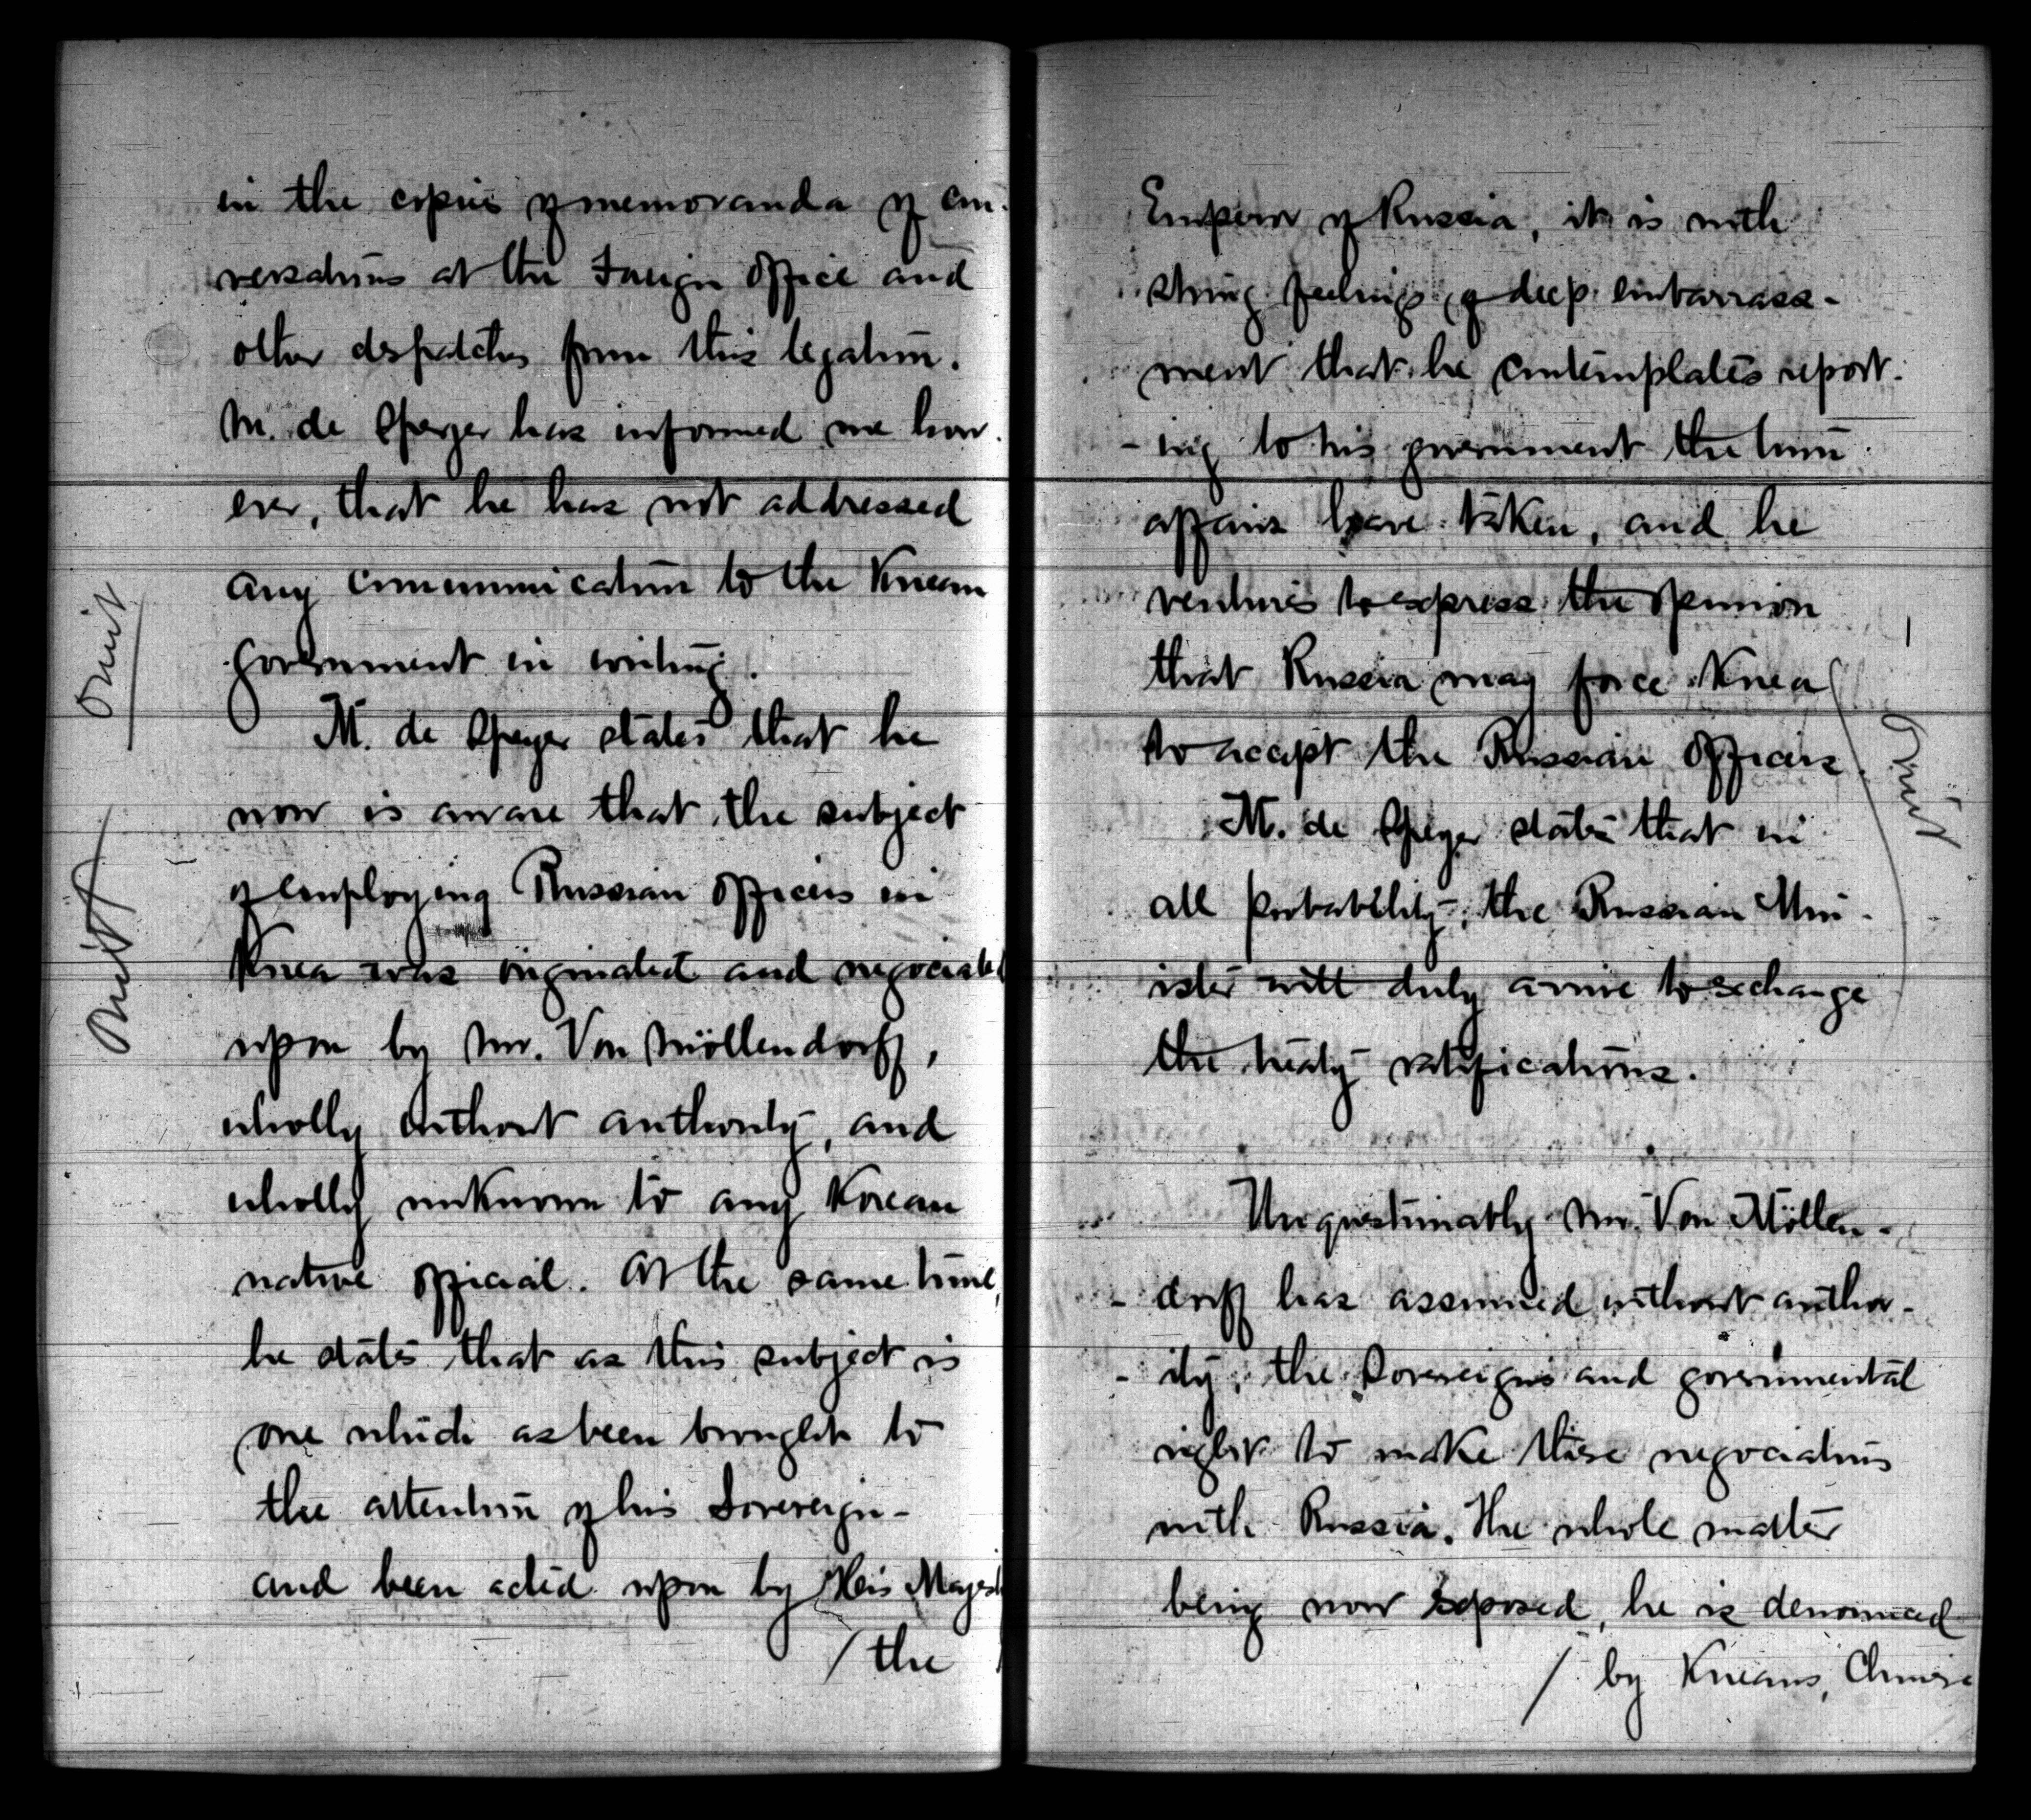 in the copies of memoranda of con-
versations at the Foreign Office and
other despatches from this legation.
M. de Speyer has informed me how-
ever, that he has not addressed
any communication to the Korean
government in writing.
M. de Speyer states that he
now is aware that the subject
of employing Russian officers in
Korea was originated and negociated
upon by Mr. Von Möllendorff,
wholly without authority, and
wholly unknown to any Korean
native official. At the same time,
he states that as this subject is
one which as been brought to
the attention of his Sovereign -
and been acted upon by His Majesty
/ the
Omit
Omit
Emperor of Russia, it is with
strong feelings of deep embarrass-
ment that he contemplates report-
- ing to his government the turn
affairs have taken, and he
ventures to express the opinion
that Russia may force Korea
to accept the Russian officers.
M. de Speyer states that in
all probability, the Russian Min-
ister will duly arrive to exchange
the treaty ratifications.
Omit
Unquestionably Mr. Von Möllen-
- dorff has assumed without author-
- ity, the Sovereigns and governmental
right to make these negociations
with Russia. The whole matter
being now exposed, he is denounced
/ by Koreans, Chinese